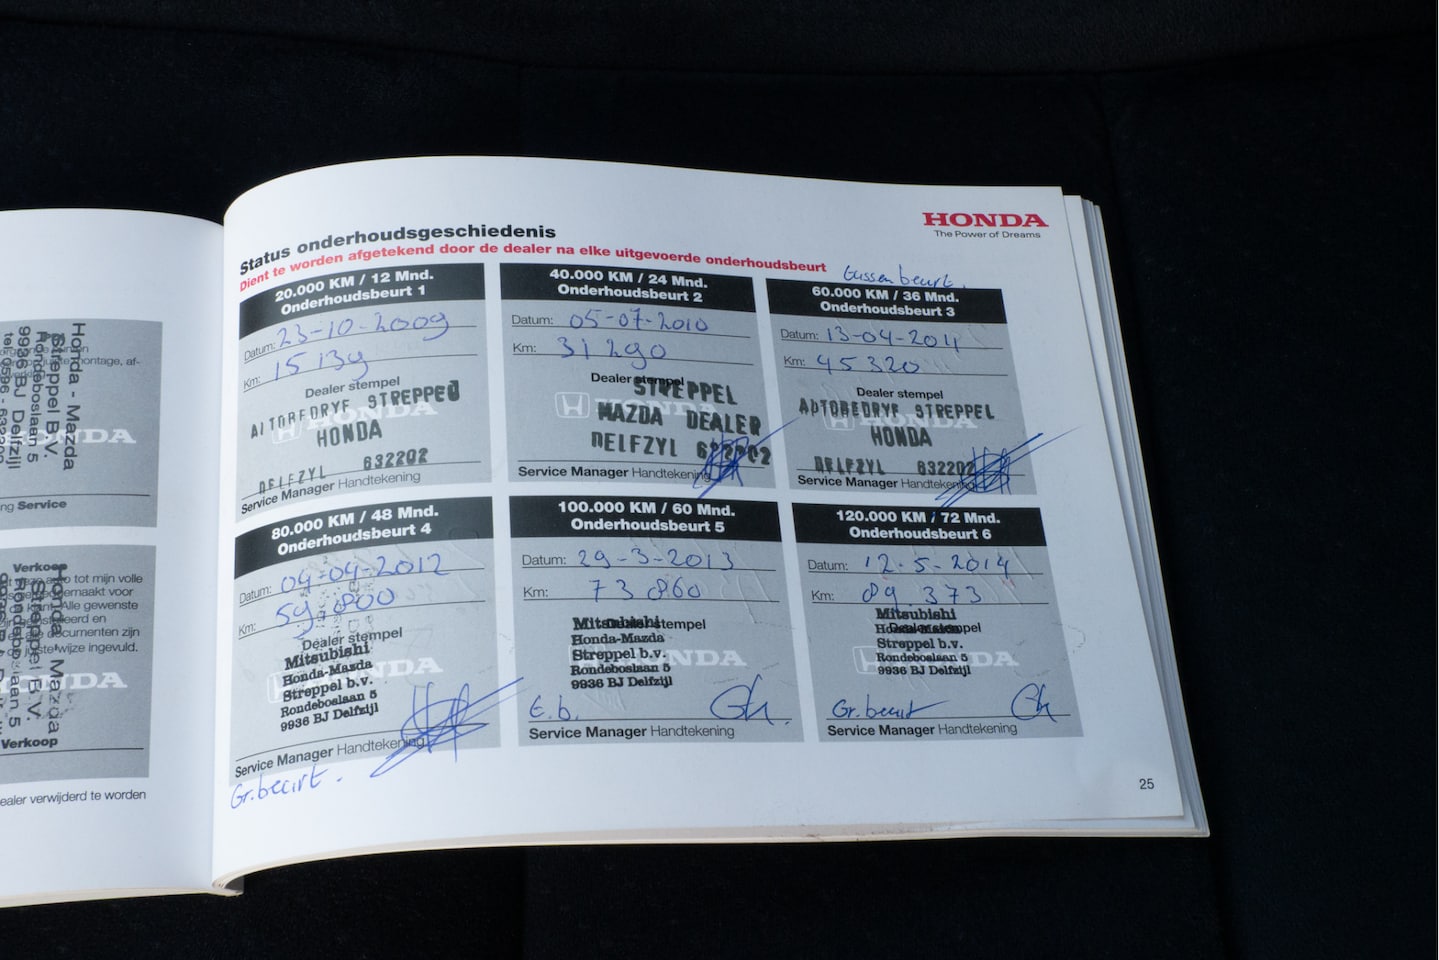 Honda - Mazda
Streppel B.V.
Rondeboslaan 5
9936 BJ Delfzijl
HONDA
ng Service
Verkoop
auto tot mijn volle
gemaakt voor
Alle gewenste
en
documenten zijn
wijze ingevuld.
Honda - Mazda
Streppel B.V.
Rondeboslaan 5
HONDA
Verkoop
ealer verwijderd te worden
HONDA
The Power of Dreams
Status onderhoudsgeschiedenis
Dient te worden afgetekend door de dealer na elke uitgevoerde onderhoudsbeurt
20.000 KM / 12 Mnd.
Onderhoudsbeurt 1
Datum: 23-10-2009
Km: 15139
Dealer stempel
AUTOBEDRYF STREPPEL
HONDA
HONDA
DELFZYL 632202
Service Manager Handtekening
40.000 KM / 24 Mnd.
Onderhoudsbeurt 2
Datum: 05-07-2010
Km: 31290
Dealer stempel
STREPPEL
MAZDA DEALER
DELFZYL 632202
Service Manager Handtekening
tussenbeurt.
60.000 KM / 36 Mnd.
Onderhoudsbeurt 3
Datum: 13-04-2011
Km: 45320
Dealer stempel
AUTOBEDRYF STREPPEL
HONDA
HONDA
DELFZYL 632202
Service Manager Handtekening
80.000 KM / 48 Mnd.
Onderhoudsbeurt 4
Datum: 04-04-2012
Km: 59800
Dealer stempel
Mitsubishi
Honda-Mazda
Streppel b.v.
Rondeboslaan 5
9936 BJ Delfzijl
HONDA
Service Manager Handtekening
Gr.beurt.
100.000 KM / 60 Mnd.
Onderhoudsbeurt 5
Datum: 29-3-2013
Km: 73860
Dealer stempel
Mitsubishi
Honda-Mazda
Streppel b.v.
Rondeboslaan 5
9936 BJ Delfzijl
HONDA
Service Manager Handtekening
120.000 KM / 72 Mnd.
Onderhoudsbeurt 6
Datum: 12-5-2014
Km: 89 373
Dealer stempel
Mitsubishi
Honda-Mazda
Streppel b.v.
Rondeboslaan 5
9936 BJ Delfzijl
HONDA
Gr.beurt
Service Manager Handtekening
25